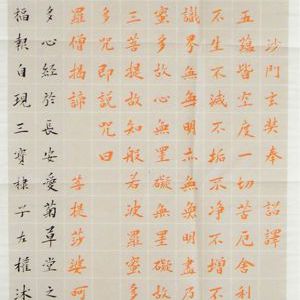 沙門玄奘奉 詔譯
五蘊皆空度一切苦厄舍利
不生不滅不垢不淨不增不
識界無無明亦無無明盡乃
蜜多故心無罣礙無罣礙故
三菩提故知般若波羅蜜多
多即說咒曰
羅僧揭諦 菩提莎婆呵
多心經於長安愛菊草堂之
福報自現三寶棣子左權沐